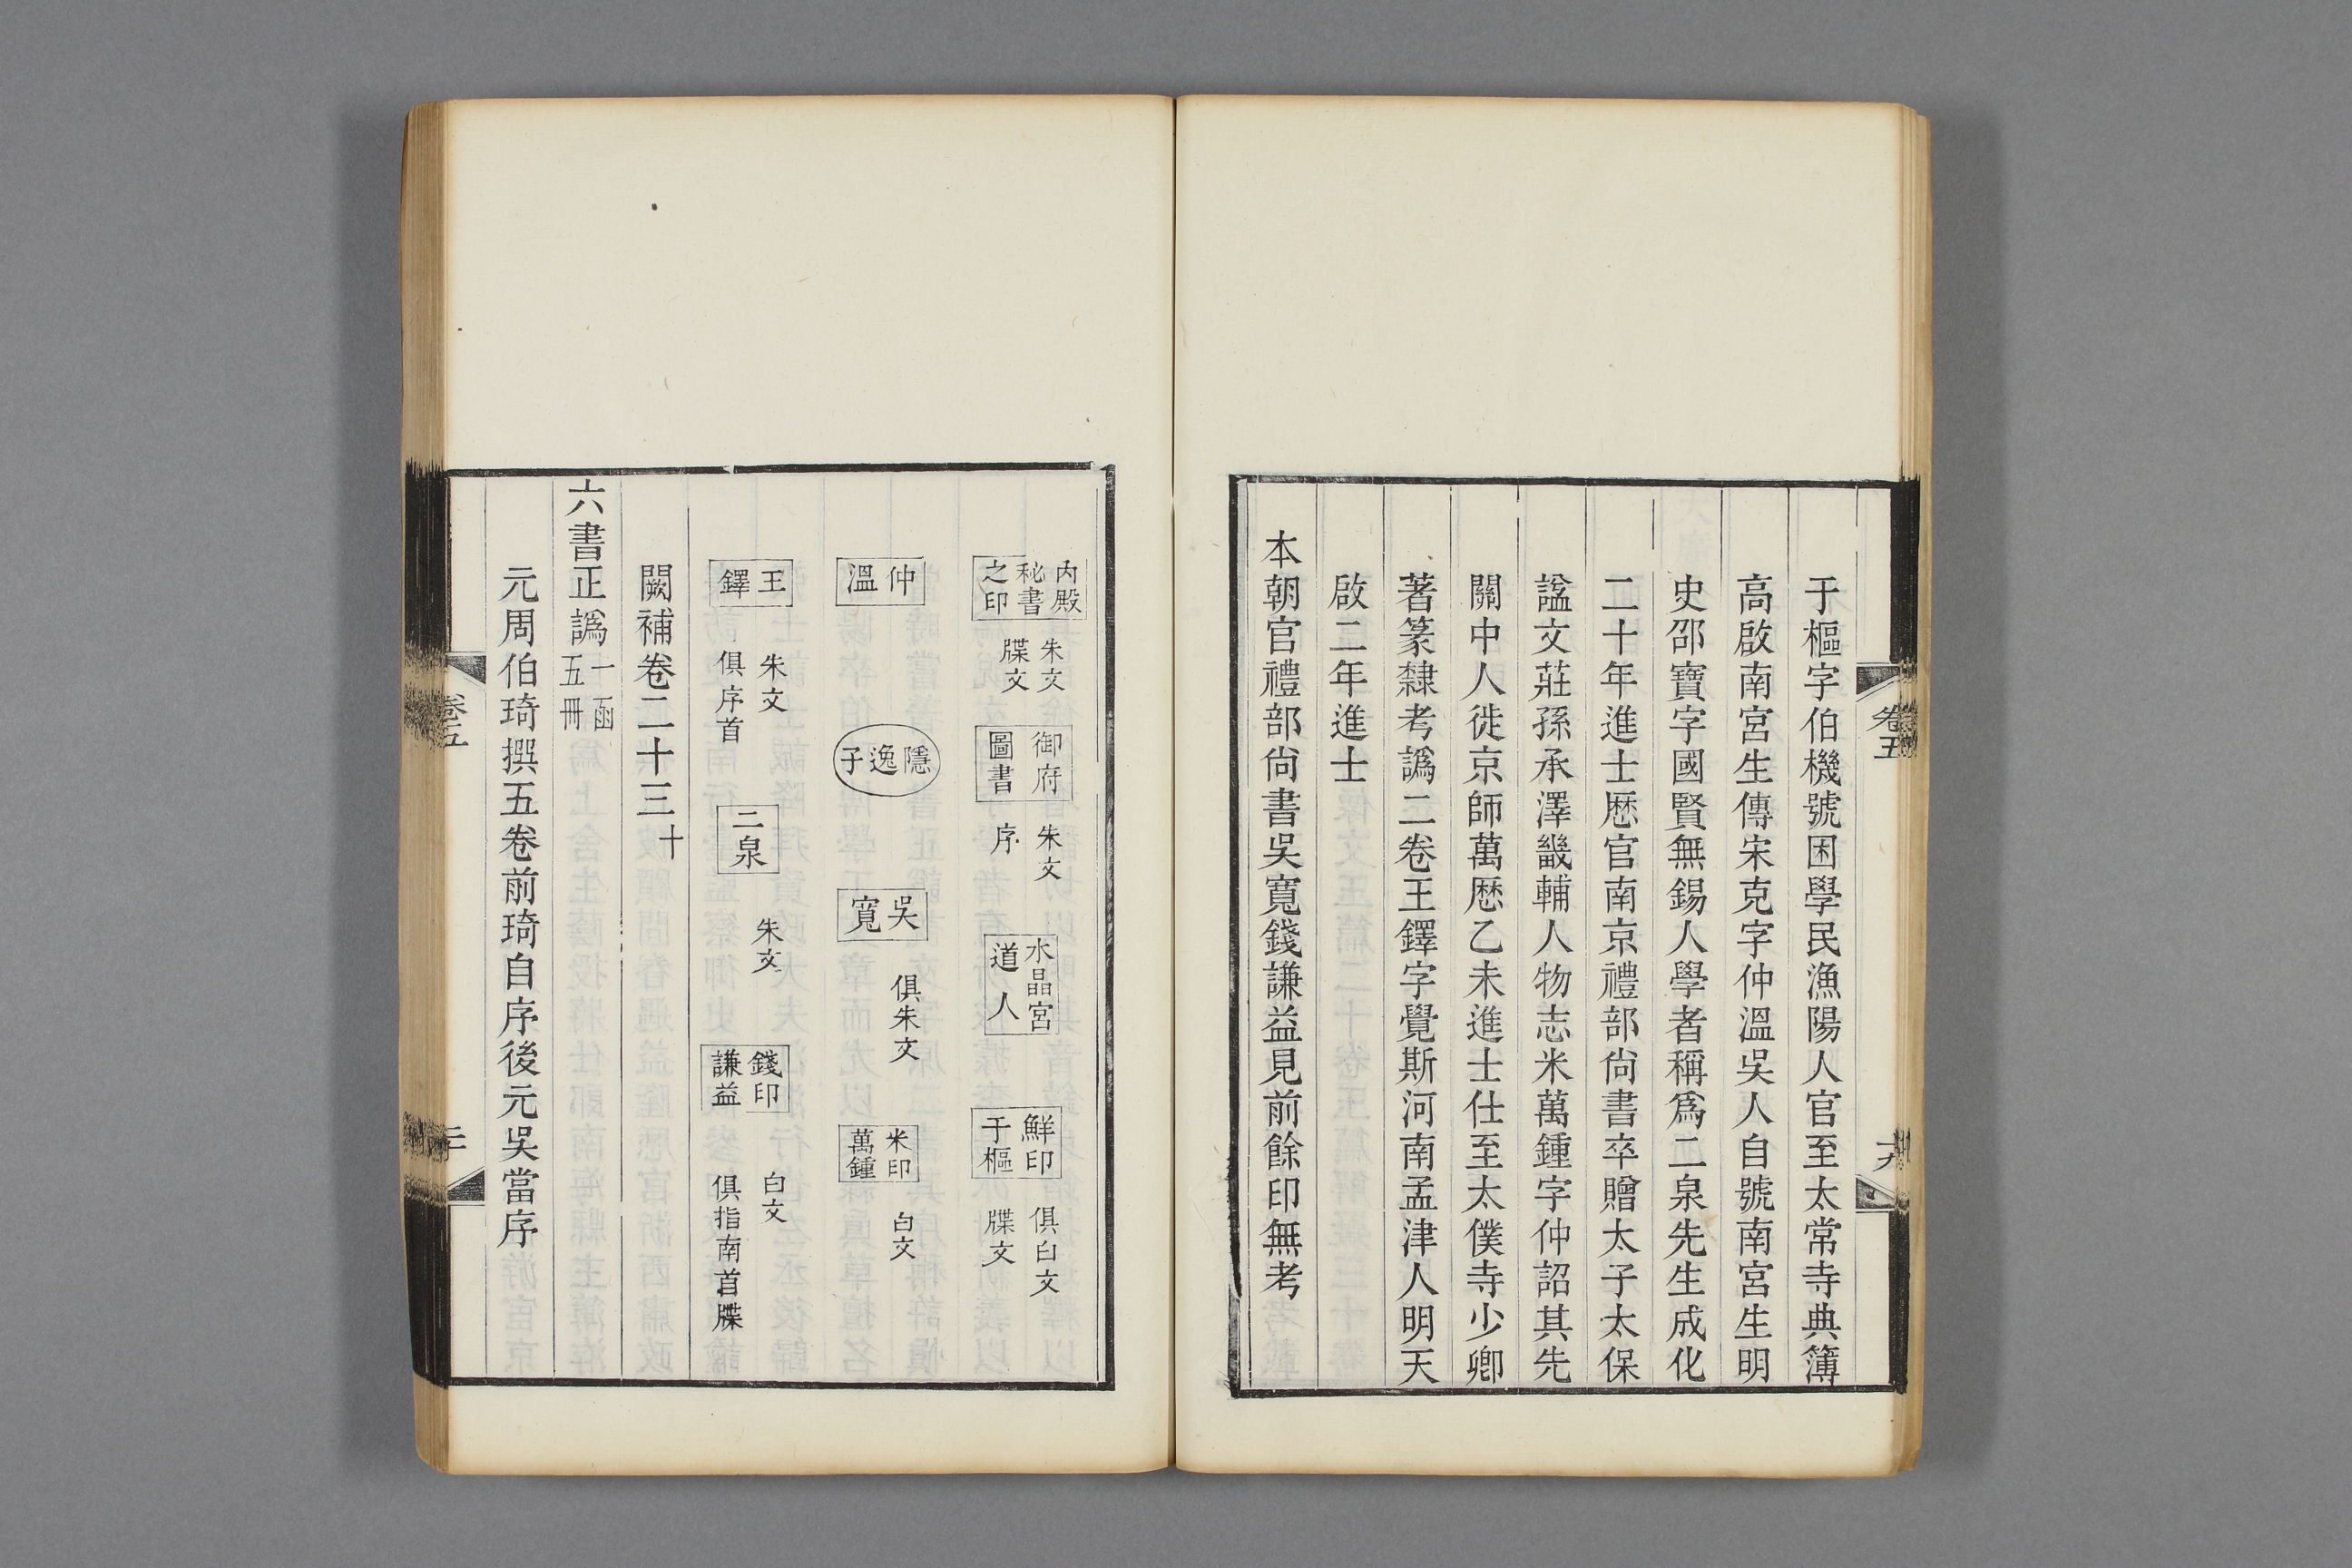 于樞字伯機號困學民漁陽人官至太常寺典簿
高啟南宮生傳宋克字仲溫吳人自號南宮生明
史邵寶字國賢無錫人學者稱爲二泉先生成化
二十年進士歷官南京禮部尙書卒贈太子太保
諡文莊孫承澤畿輔人物志米萬鍾字仲詔其先
關中人徙京師萬歷乙未進士仕至太僕寺少卿
著篆隸考譌二卷王鐸字覺斯河南孟津人明天
啟二年進士
本朝官禮部尙書吳寬錢謙益見前餘印無考
卷五
十九
內殿
秘書
之印
朱文
牒文
御府
圖書
朱文
序
水晶宮
道人
鮮印
于樞
俱白文
牒文
仲
溫
隱逸子
吳
寬
俱朱文
米印
萬鍾
白文
王
鐸
朱文
俱序首
二泉
朱文
錢印
謙益
白文
俱指南首牒
闕補卷二十三 十
六書正譌 一函
五冊
元周伯琦撰五卷前琦自序後元吳當序
卷五
二十